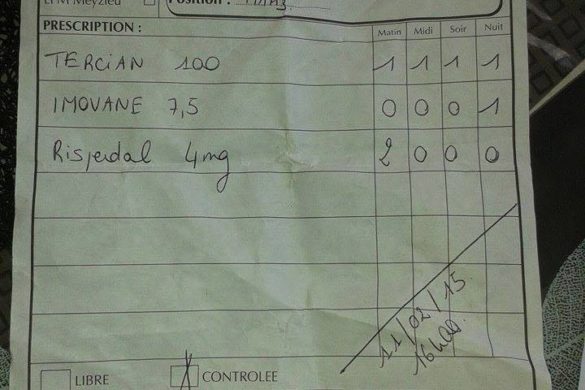 EPM Meyzieu Position :
PRESCRIPTION : Matin Midi Soir Nuit
TERCIAN 100 1 1 1 1
IMOVANE 7,5 0 0 0 1
Risperdal 4mg 2 0 0 0
11/02/15
16h00
LIBRE X CONTROLEE